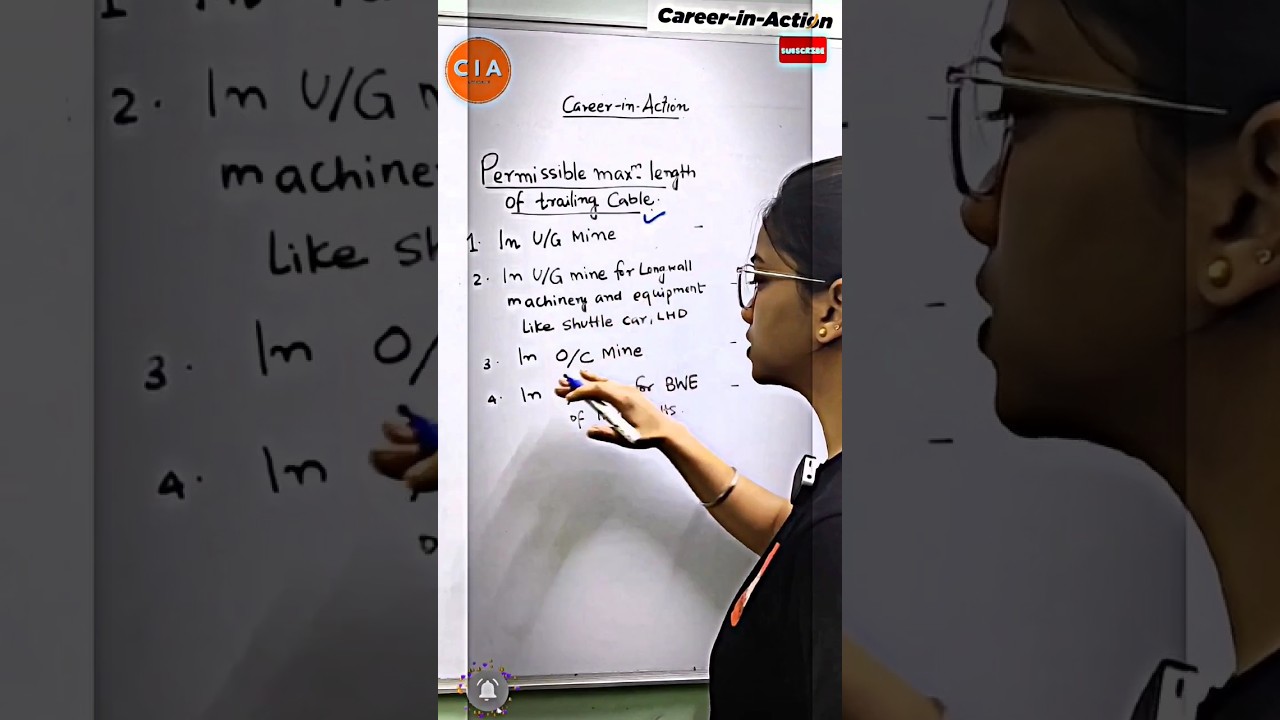 Career-in-Action
SUBSCRIBE
CIA
Career-in-Action
Permissible maxm. length
of trailing Cable.
1. In U/G Mine -
2. In U/G mine for Longwall
machinery and equipment
Like shuttle car, LHD -
3. In O/C Mine -
4. In for BWE -
of
2. In U/G
machine
Like sh
3. In O/
4. In